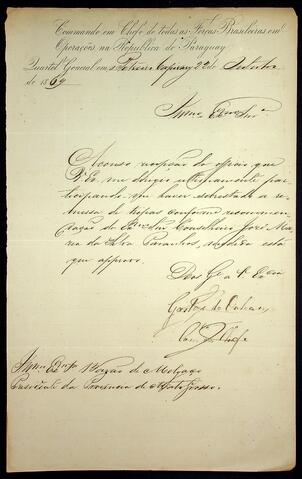 Commando em Chefe de todas as Forças Brasileiras em
Operações na Republica do Paraguay
Quartel General em Potrero Capivary 22 de Setembro
de 1869
Illmo Exmo Snr
Accuso recepção do officio que
V. Exa me dirigio ultimamente par-
ticipando-me haver sobrestado a re-
messa de tropas conforme recommen-
dação do Exmo Snr Conselheiro José Ma-
ria da Silva Paranhos, medida esta
que approvo.
Deos Ge a V. Exa
Gastão de Orleans
Com Chefe
Illmo Exmo Snr Barão de Melgaço
Presidente da Provincia de Mato Grosso.